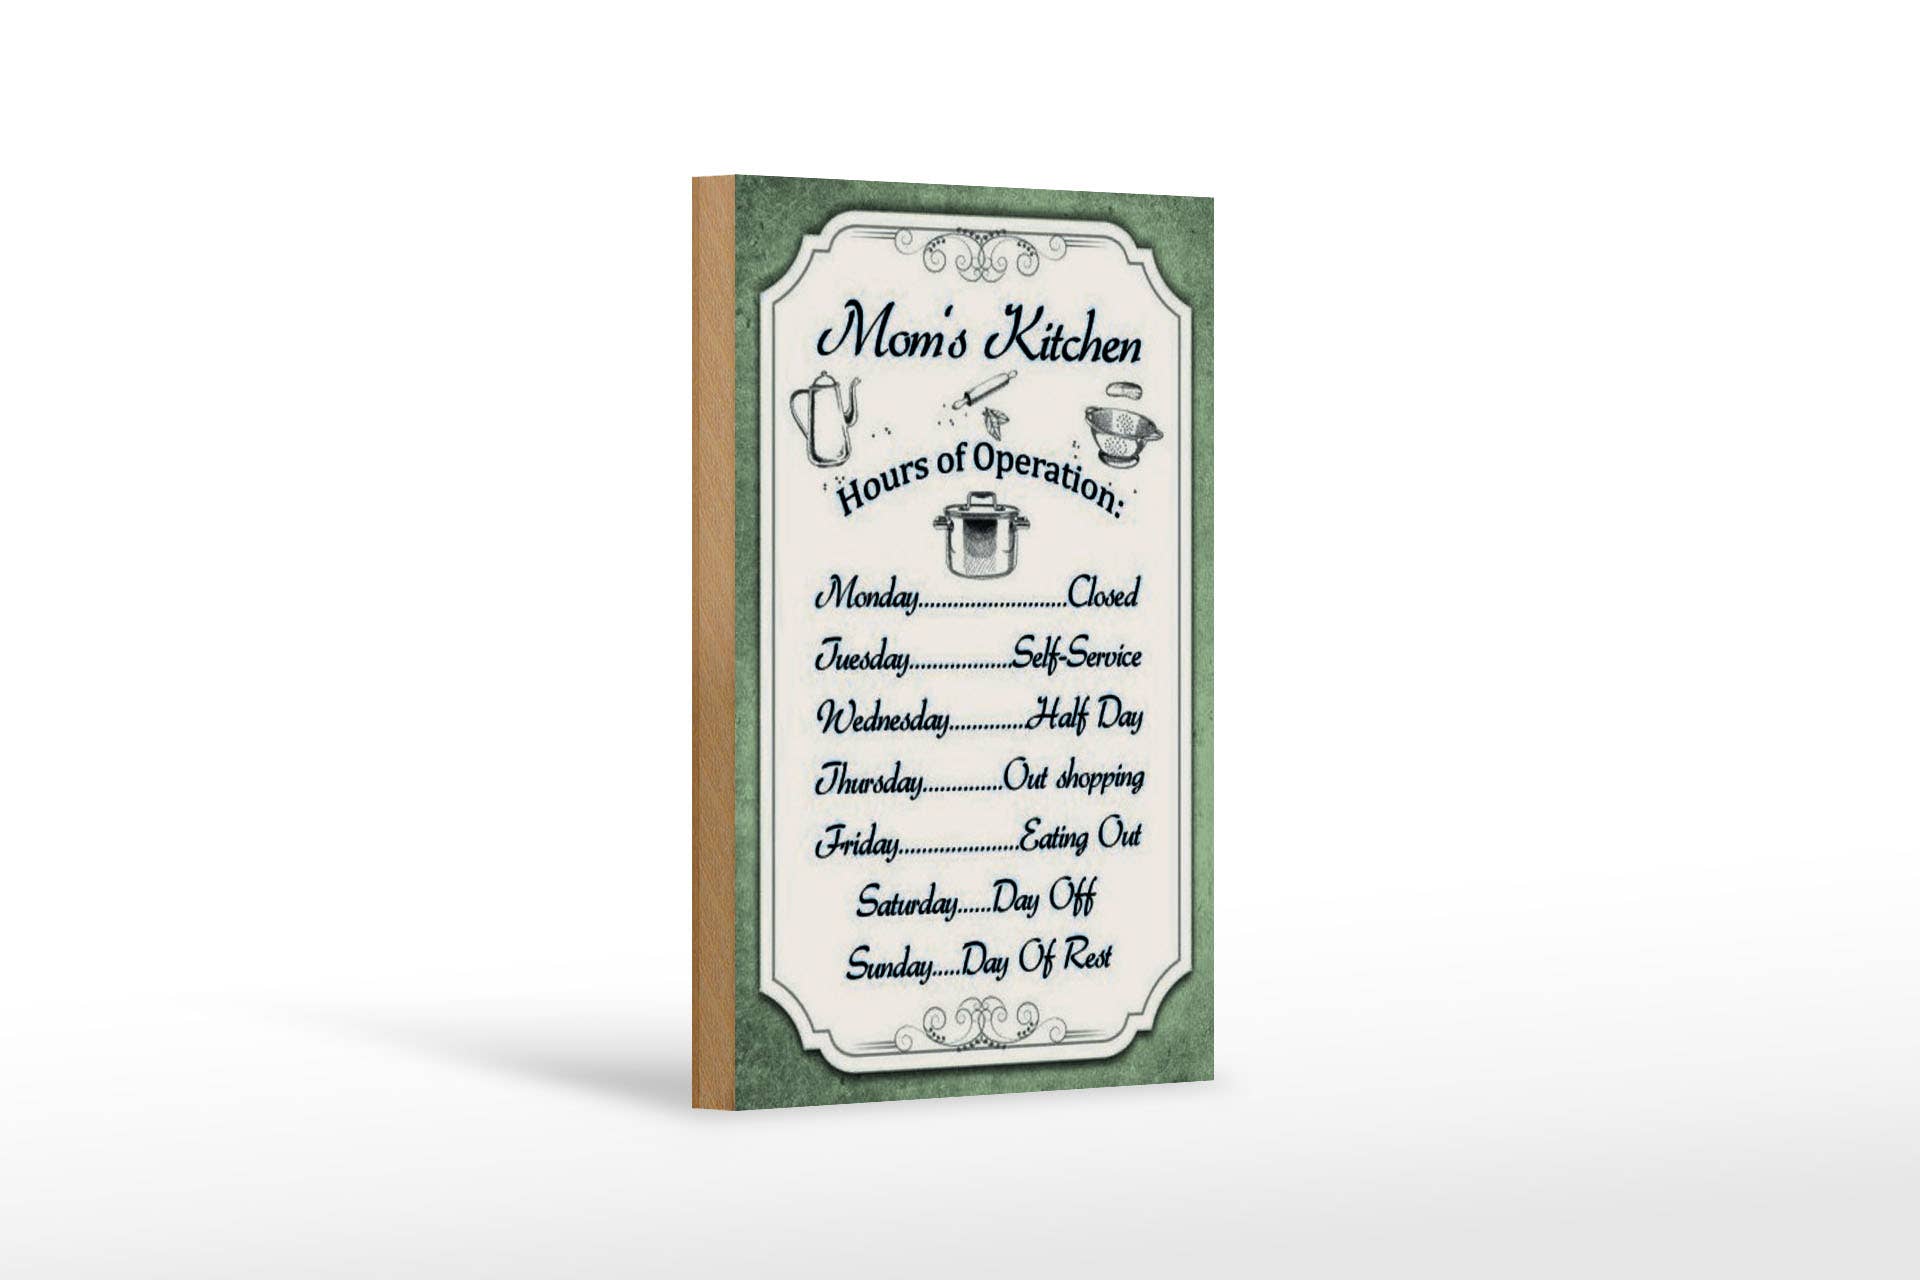 Mom's Kitchen
Hours of Operation:
Monday..........................Closed
Tuesday..................Self-Service
Wednesday..............Half Day
Thursday..............Out shopping
Friday.....................Eating Out
Saturday......Day Off
Sunday.....Day Of Rest